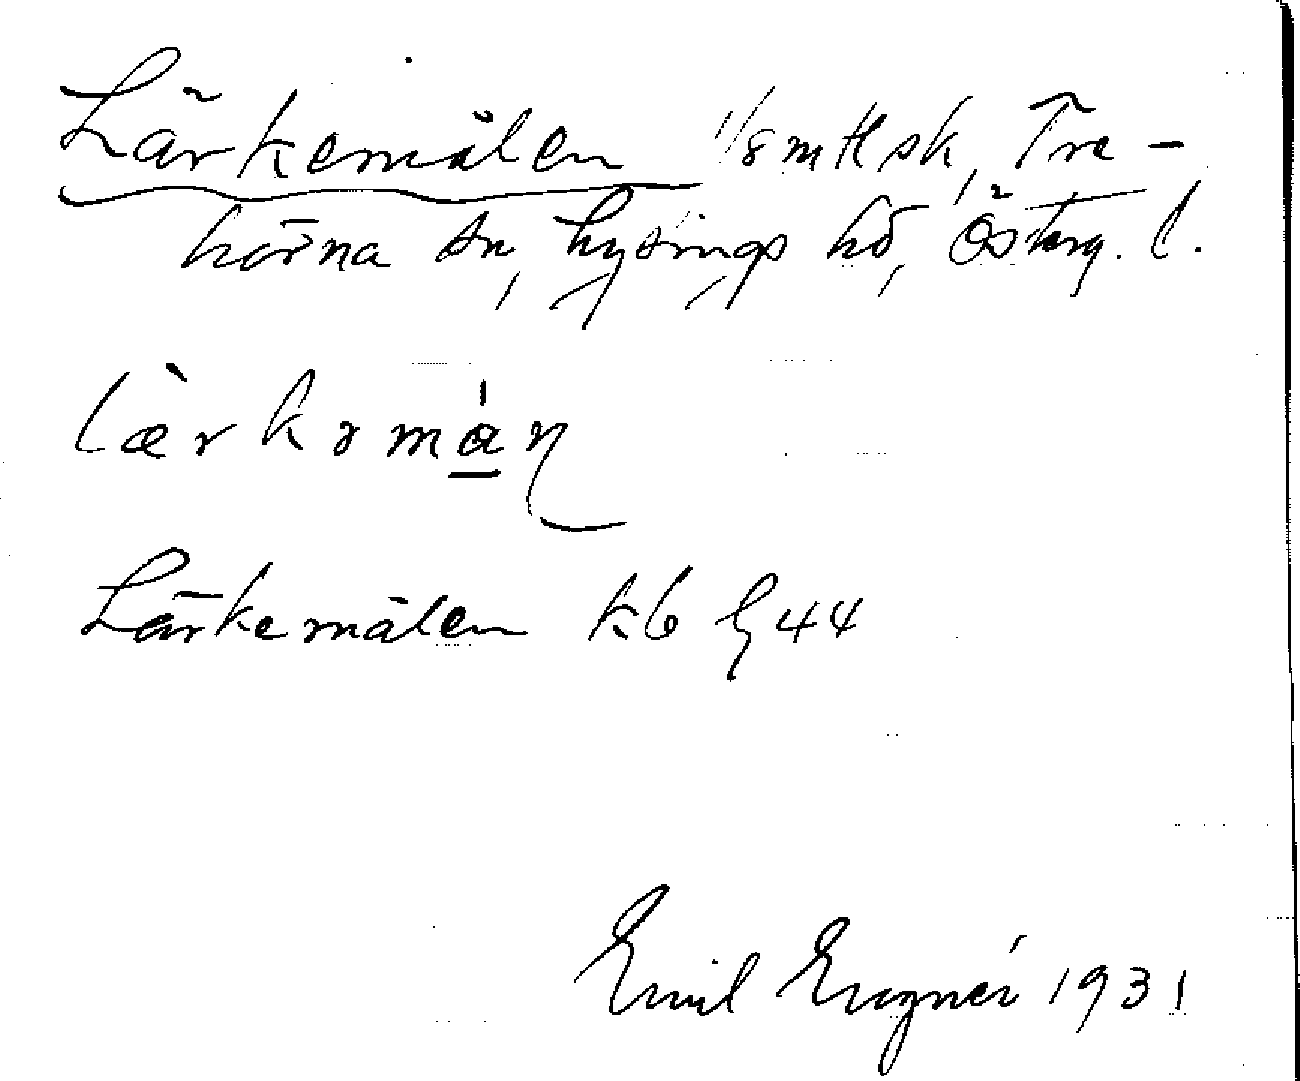 Lärkemålen 1/8 mtl sk, Tre-
hörna sn, Lysings hd, Österg. l.
lærkəmán
Lärkemålen kb § 44
Emil Engnér 1931